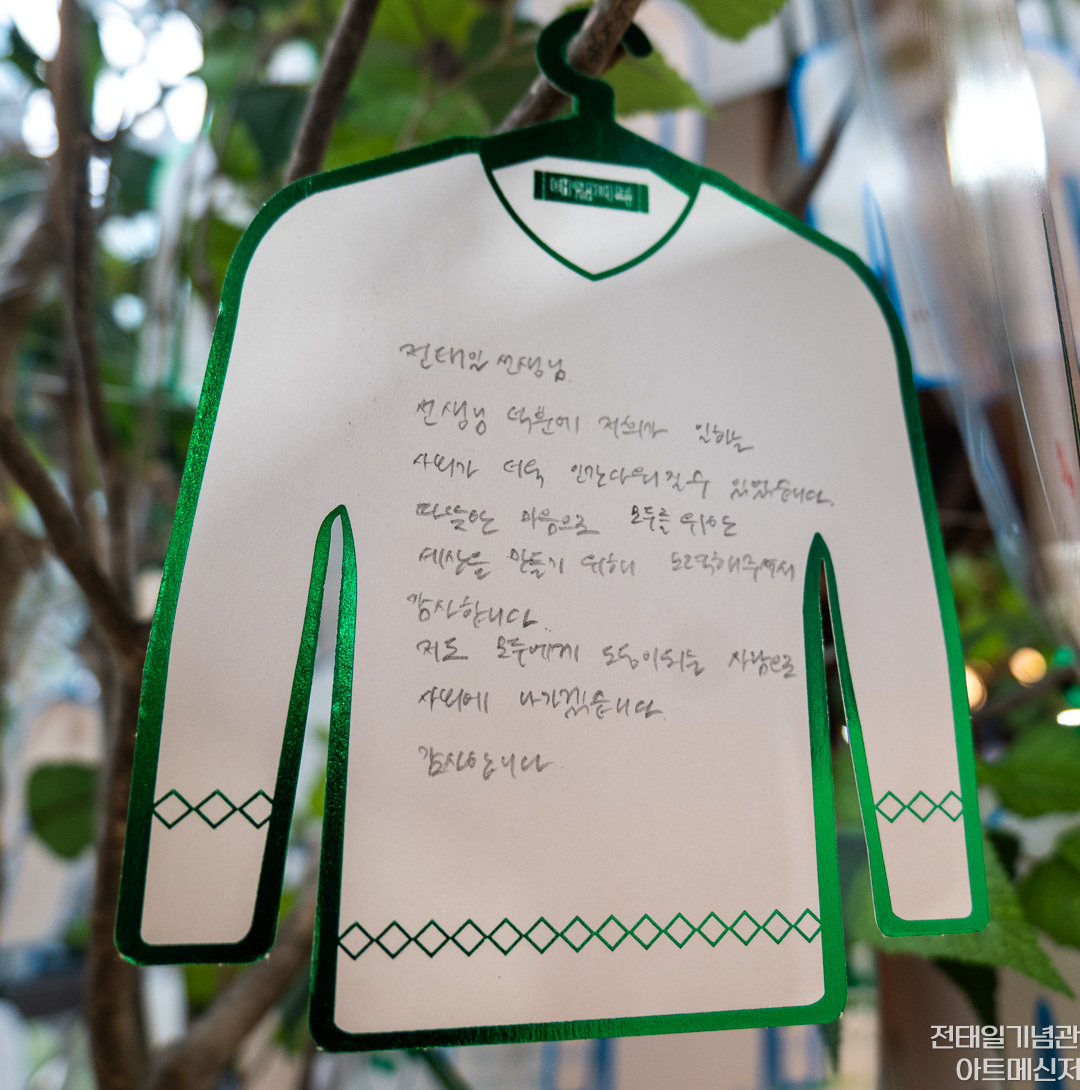 전태일 선생님.
선생님 덕분에 저희가 일하는
사회가 더욱 인간다워질 수 있었습니다.
따뜻한 마음으로 모두를 위하는
세상을 만들기 위해 노력해주셔서
감사합니다.
저도 모두에게 도움이 되는 사람으로
사회에 나가겠습니다.
감사합니다
전태일기념관
아트메신저